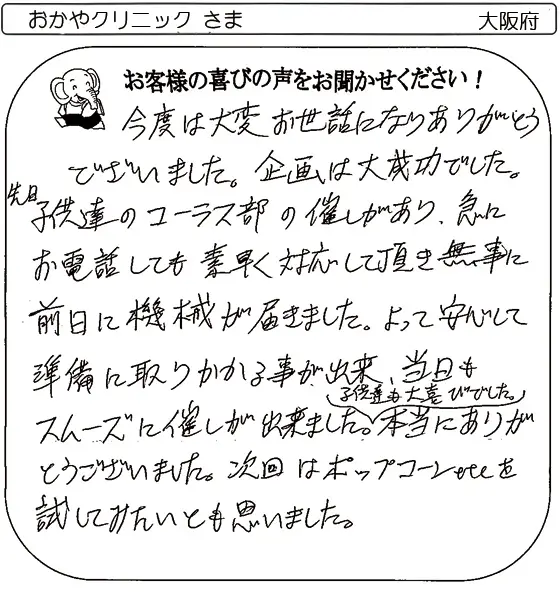 おかやクリニック さま 大阪府
お客様の喜びの声をお聞かせください！
今度は大変お世話になりありがとう
ございました。企画は大成功でした。
先日
子供達のコーラス部の催しがあり、急に
お電話しても素早く対応して頂き無事に
前日に機械が届きました。よって安心して
準備に取りかかる事が出来、当日も
子供達も大喜びでした。
スムーズに催しが出来ました。本当にありが
とうございました。次回はポップコーンetcを
試してみたいとも思いました。